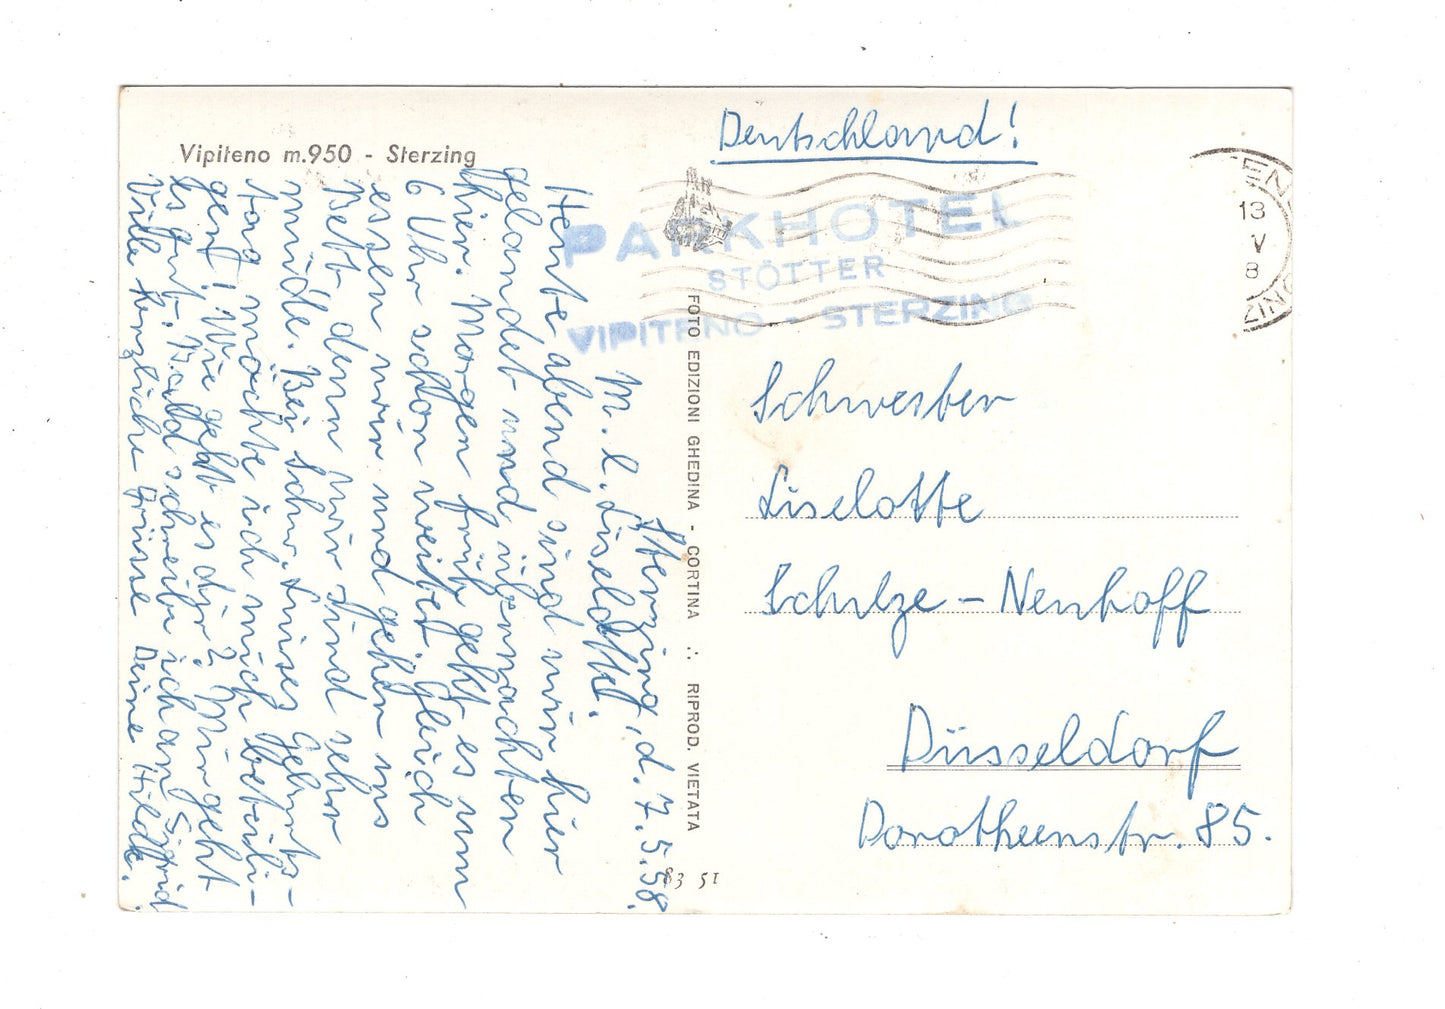 Vipiteno m.950 - Sterzing
Sterzing, d. 7.5.58.
M. l. Liselotte.
Heute abend sind wir hier
gelandet und übernachten
hier. Morgen früh geht es um
6 Uhr schon weiter. Gleich
essen wir und gehen ins
Bett denn wir sind sehr
müde. Bei Schw. Luises Geburts-
tag möchte ich mich beteili-
gen! Wie geht es dir? Mir geht
es gut. Bald schreibe ich an Sigrid
Viele herzliche Grüsse Deine Hilde.
FOTO EDIZIONI GHEDINA - CORTINA ∴ RIPROD. VIETATA
83 51
Deutschland!
PARKHOTEL
STÖTTER
VIPITENO - STERZING
13
V
8
Schwester
Liselotte
Schulze - Neuhoff
Düsseldorf
Dorotheenstr. 85.